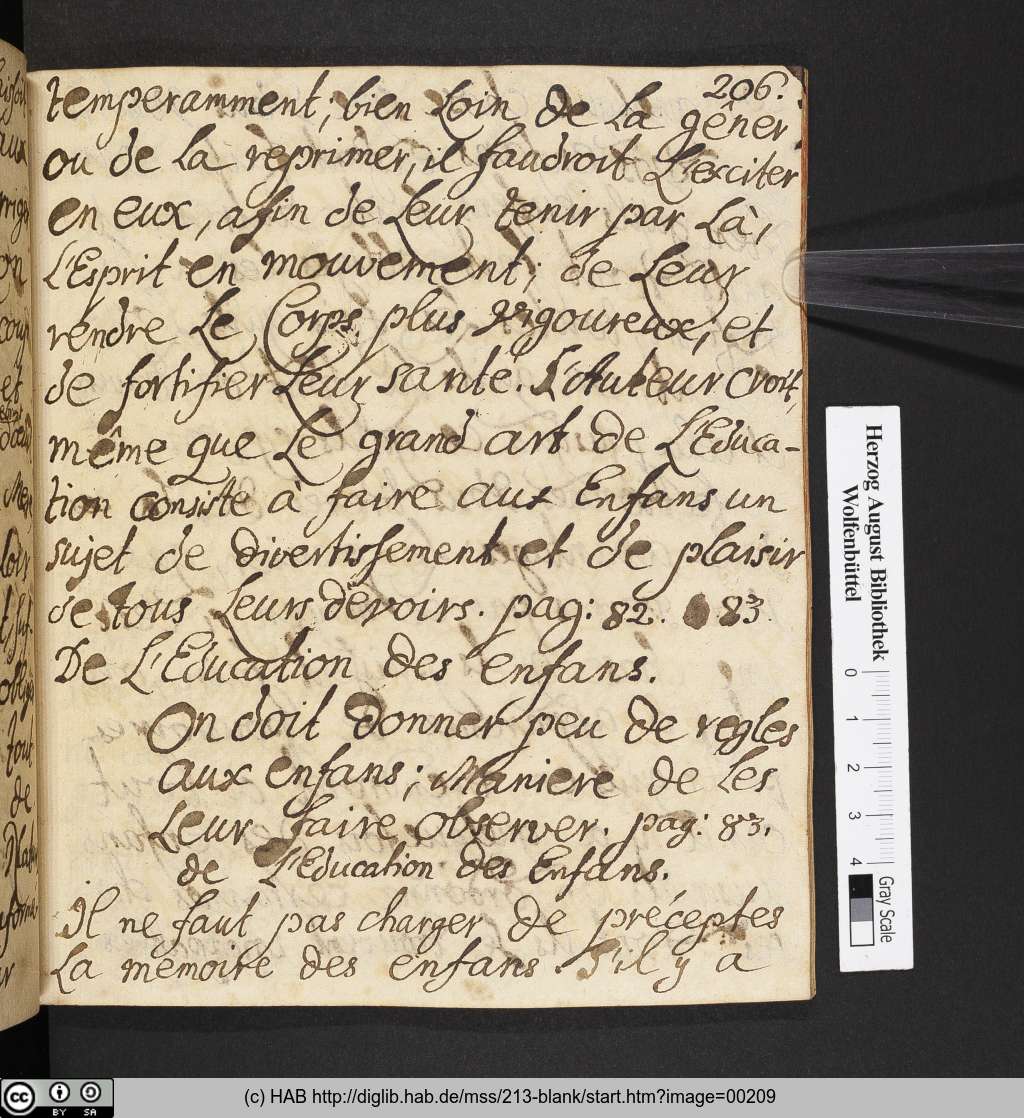 206.
temperamment; bien Loin de La gêner
ou de La reprimer, il faudroit L'exciter
en eux, afin de Leur tenir par Là,
L'Esprit en mouvement; de Leur
rendre Le Corps plus vigoureux, et
de fortifier Leur santé. L'Auteur croit,
même que Le grand art de L'Educa-
tion consiste à faire aux Enfans un
sujet de divertissement et de plaisir
de tous Leurs devoirs. pag: 82. 83.
De L'Education des enfans.
On doit donner peu de regles
aux enfans; Maniere de Les
Leur faire observer. pag: 83.
de L'Education des Enfans.
Il ne faut pas charger de préceptes
La memoire des enfans. S'il y a
Herzog August Bibliothek
Wolfenbüttel
0 1 2 3 4
Gray Scale
cc BY SA
(c) HAB http://diglib.hab.de/mss/213-blank/start.htm?image=00209